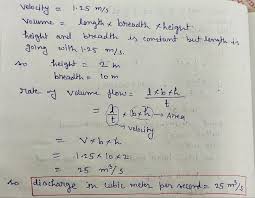 velocity = 1.25 m/s
Volume = length x breadth x height
height and breadth is constant but length is
going with 1.25 m/s.
so height = 2 m
breadth = 10 m
rate of volume flow = l×b×h / t
= (l/t) × (b×h) → Area
↳ velocity
= V×b×h
= 1.25×10×2
= 25 m³/s
so discharge in cubic meter per second = 25 m³/s